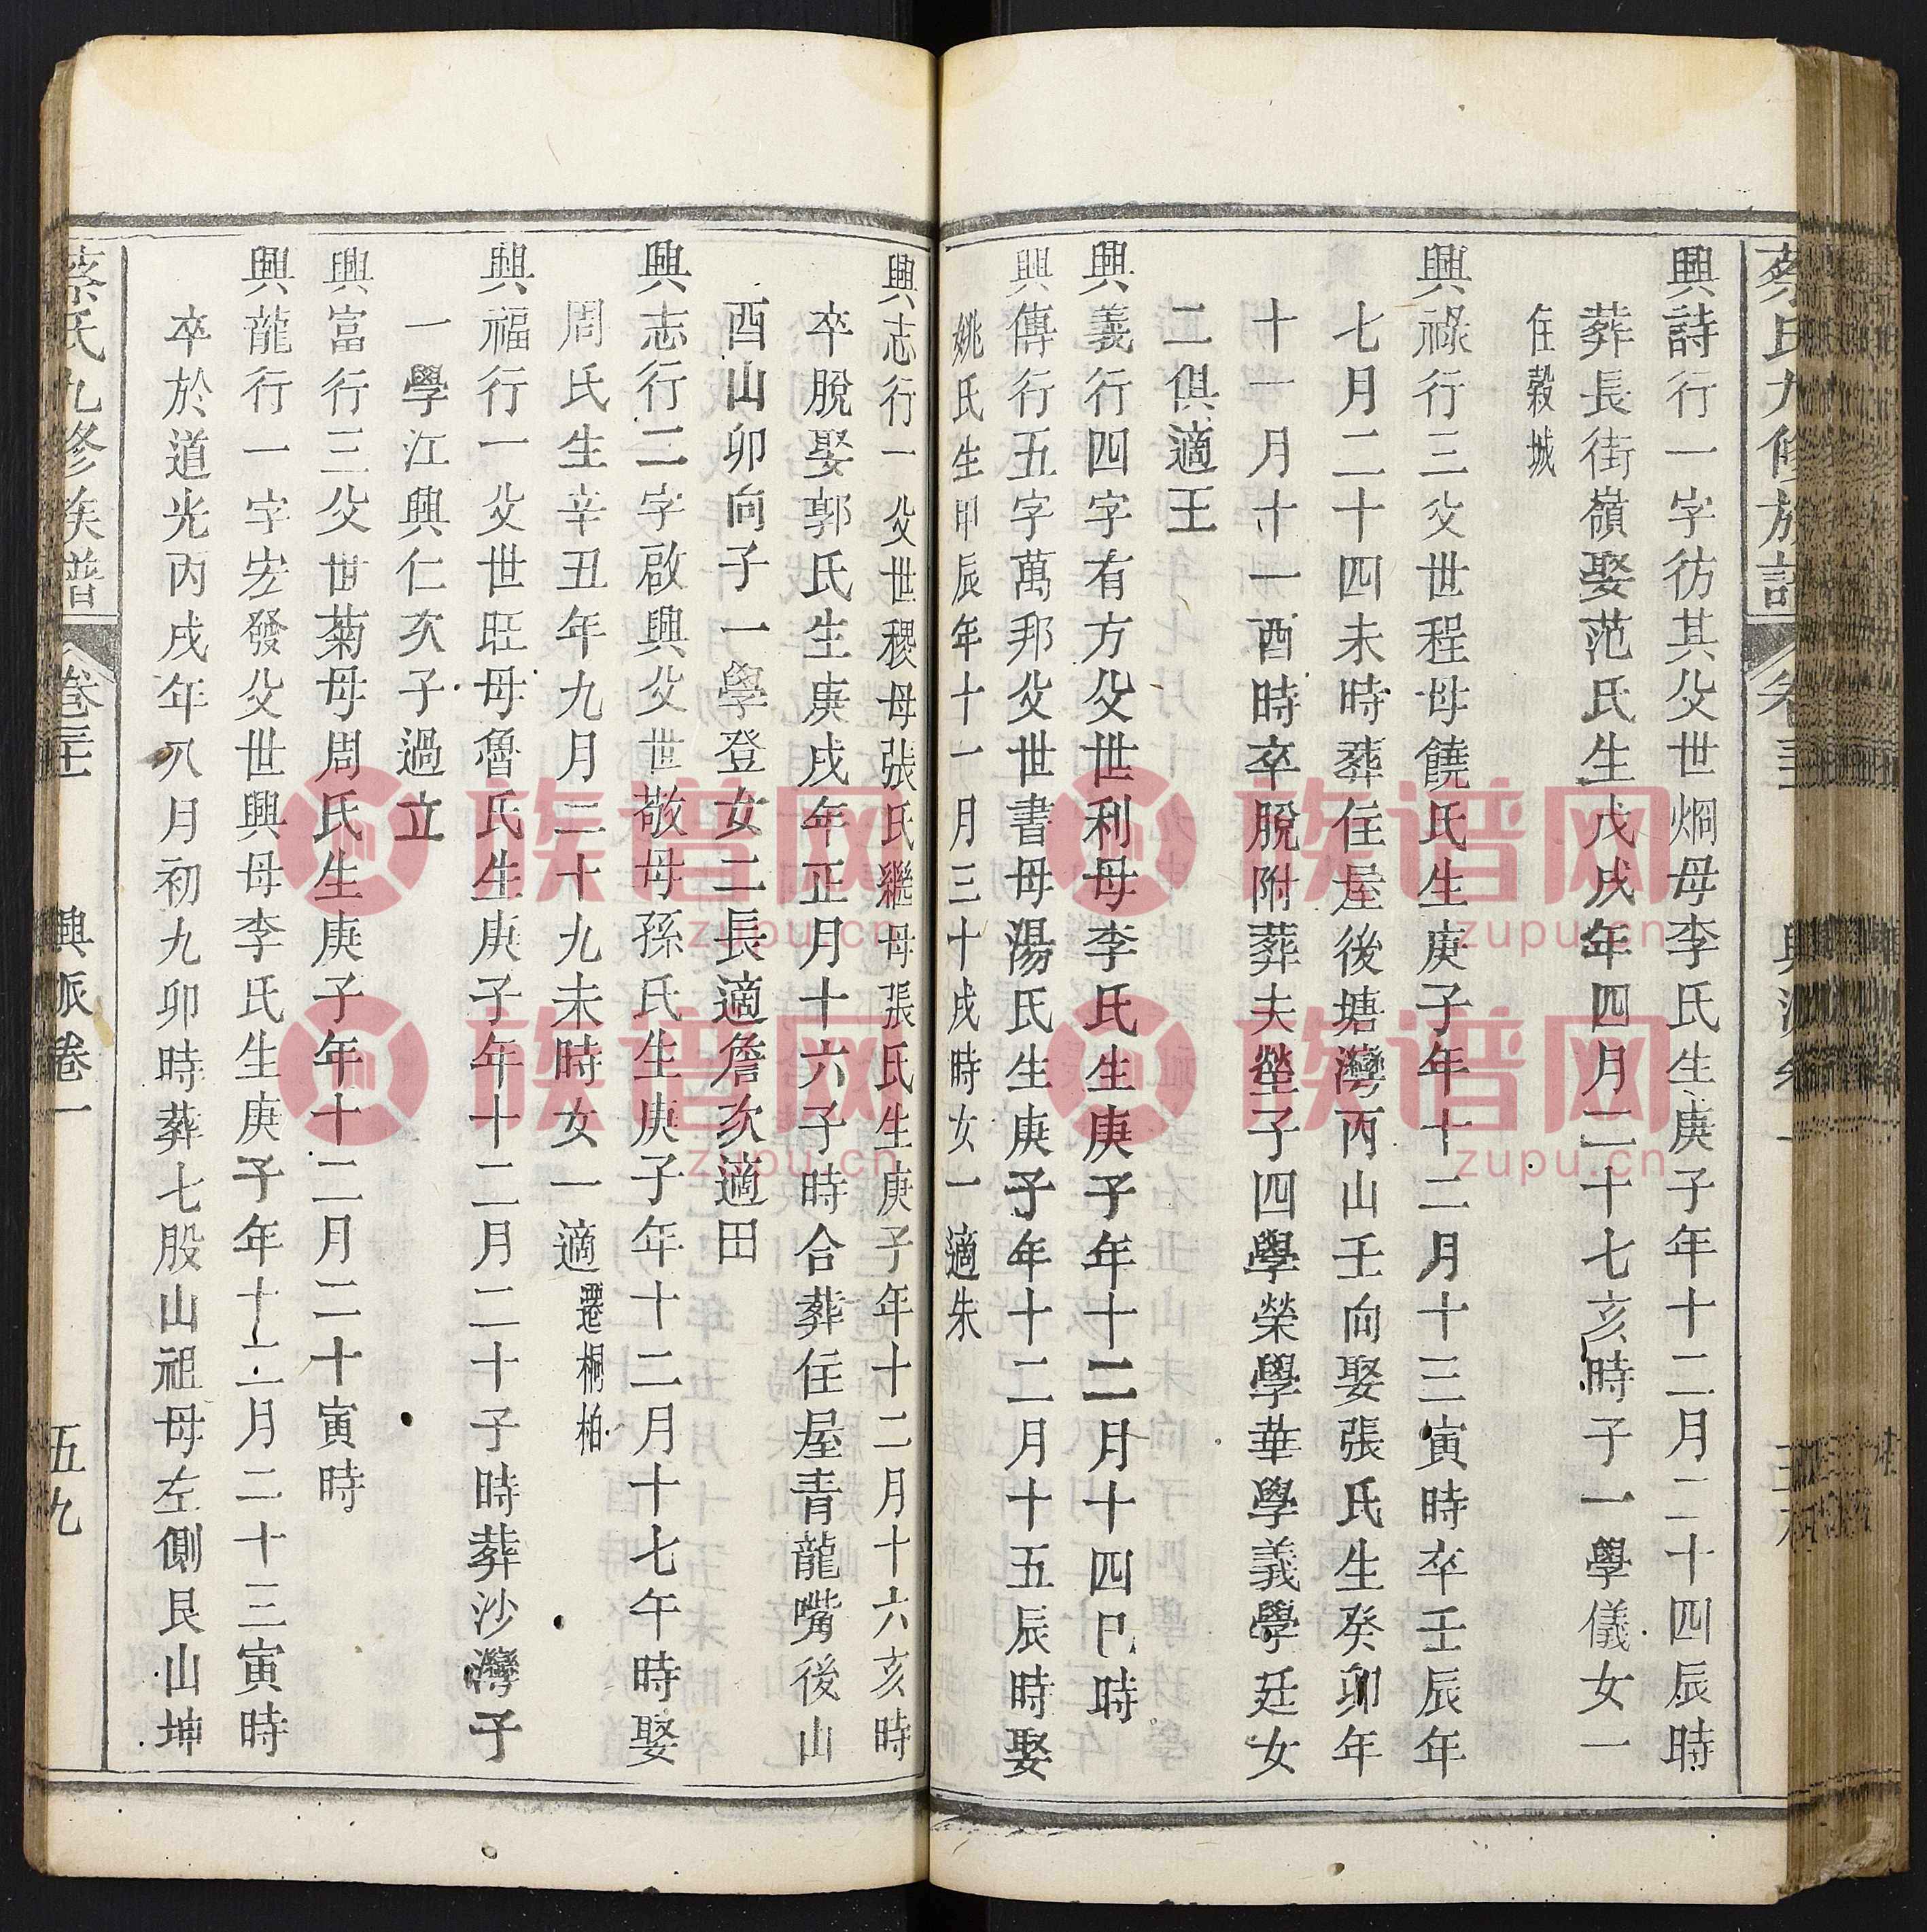 蔡氏九修族譜
興詩行一字彷其父世烱母李氏生庚子年十二月二十四辰時
葬長街嶺娶范氏生戊戌年四月二十七亥時子一學儀女一
住穀城
興祿行三父世程母饒氏生庚子年十二月十三寅時卒壬辰年
七月二十四未時葬住屋後塘灣丙山壬向娶張氏生癸卯年
十一月十一酉時卒脫附葬夫塋子四學榮學華學義學廷女
二俱適王
興義行四字有方父世利母李氏生庚子年十二月十四巳時
興傳行五字萬邦父世書母湯氏生庚子年十二月十五辰時娶
姚氏生甲辰年十一月三十戌時女一適朱
興志行一父世稷母張氏繼母張氏生庚子年十二月十六亥時
卒脫娶郭氏生庚戌年正月十六子時合葬住屋青龍嘴後山
酉山卯向子一學登女二長適詹次適田
興志行二字啟興父世敬母孫氏生庚子年十二月十七午時娶
周氏生辛丑年九月二十九未時女一適遷桐柏
興福行一父世旺母魯氏生庚子年十二月二十子時葬沙灣子
一學江興仁次子過立
興富行三父世菊母周氏生庚子年十二月二十寅時
興龍行一字宏發父世興母李氏生庚子年十二月二十三寅時
卒於道光丙戌年八月初九卯時葬七股山祖母左側艮山坤
蔡氏九修族譜 卷三十 興派卷一 五九
族谱网
zupu.cn
族谱网
zupu.cn
族谱网
zupu.cn
族谱网
zupu.cn